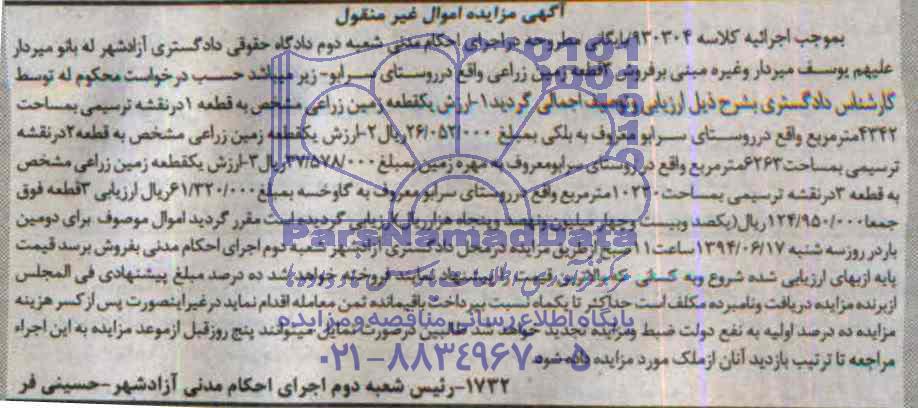 آگهی مزایده اموال غیر منقول
بموجب اجرائیه کلاسه ۹۳۰۳۰۴ بایگانی مطروحه در اجرای احکام مدنی شعبه دوم دادگاه حقوقی دادگستری آزادشهر له بانو میردار
علیهم یوسف میردار وغیره مبنی برفروش ۳قطعه زمین زراعی واقع درروستای سرابو- زیر میباشد حسب درخواست محکوم له توسط
کارشناس دادگستری بشرح ذیل ارزیابی وتوصیف اجمالی گردید۱-ارزش یکقطعه زمین زراعی مشخص به قطعه ۱درنقشه ترسیمی بمساحت
۴۳۴۲مترمربع واقع درروستای سرابو معروف به بلکی بمبلغ ۲۶/۰۵۲/۰۰۰ریال۲-ارزش یکقطعه زمین زراعی مشخص به قطعه۲درنقشه
ترسیمی بمساحت۶۲۶۳مترمربع واقع درروستای سرابومعروف به مهره زمین بمبلغ۳۷/۵۷۸/۰۰۰ریال۳-ارزش یکقطعه زمین زراعی مشخص
به قطعه ۳درنقشه ترسیمی بمساحت مترمربع واقع درروستای سرابو معروف به گاوخسه بمبلغ۶۱/۳۲۰/۰۰۰ریال ارزیابی ۳قطعه فوق
جمعا۱۲۴/۹۵۰/۰۰۰ریال(یکصد وبیست وچهار میلیون ونهصد و پنجاه هزارریال)ارزیابی گردیده است مقرر گردید اموال موصوف برای دومین
بار در روزسه شنبه ۱۳۹۴/۰۶/۱۷ساعت۱۱صبح ازطریق مزایده درمحل دادگستری آزادشهر شعبه دوم اجرای احکام مدنی بفروش برسد قیمت
پایه ازبهای ارزیابی شده شروع وبه کسانی که بالاترین قیمت را پیشنهاد نمایند فروخته خواهد شد ده درصد مبلغ پیشنهادی فی المجلس
ازبرنده مزایده دریافت ونامبرده مکلف است حداکثر تا یکماه نسبت بپرداخت باقیمانده ثمن معامله اقدام نماید درغیراینصورت پس از کسر هزینه
مزایده ده درصد اولیه به نفع دولت ضبط ومزایده تجدید خواهد شد طالبین درصورت تمایل میتوانند پنج روزقبل ازموعد مزایده به این اجراء
مراجعه تا ترتیب بازدید آنان ازملک مورد مزایده داده شود
۱۷۳۲-رئیس شعبه دوم اجرای احکام مدنی آزادشهر-حسینی فر
ParsNamadData
پایگاه اطلاع رسانی مناقصه و مزایده
۰۲۱-۸۸۳۴۹۶۷۰-۵